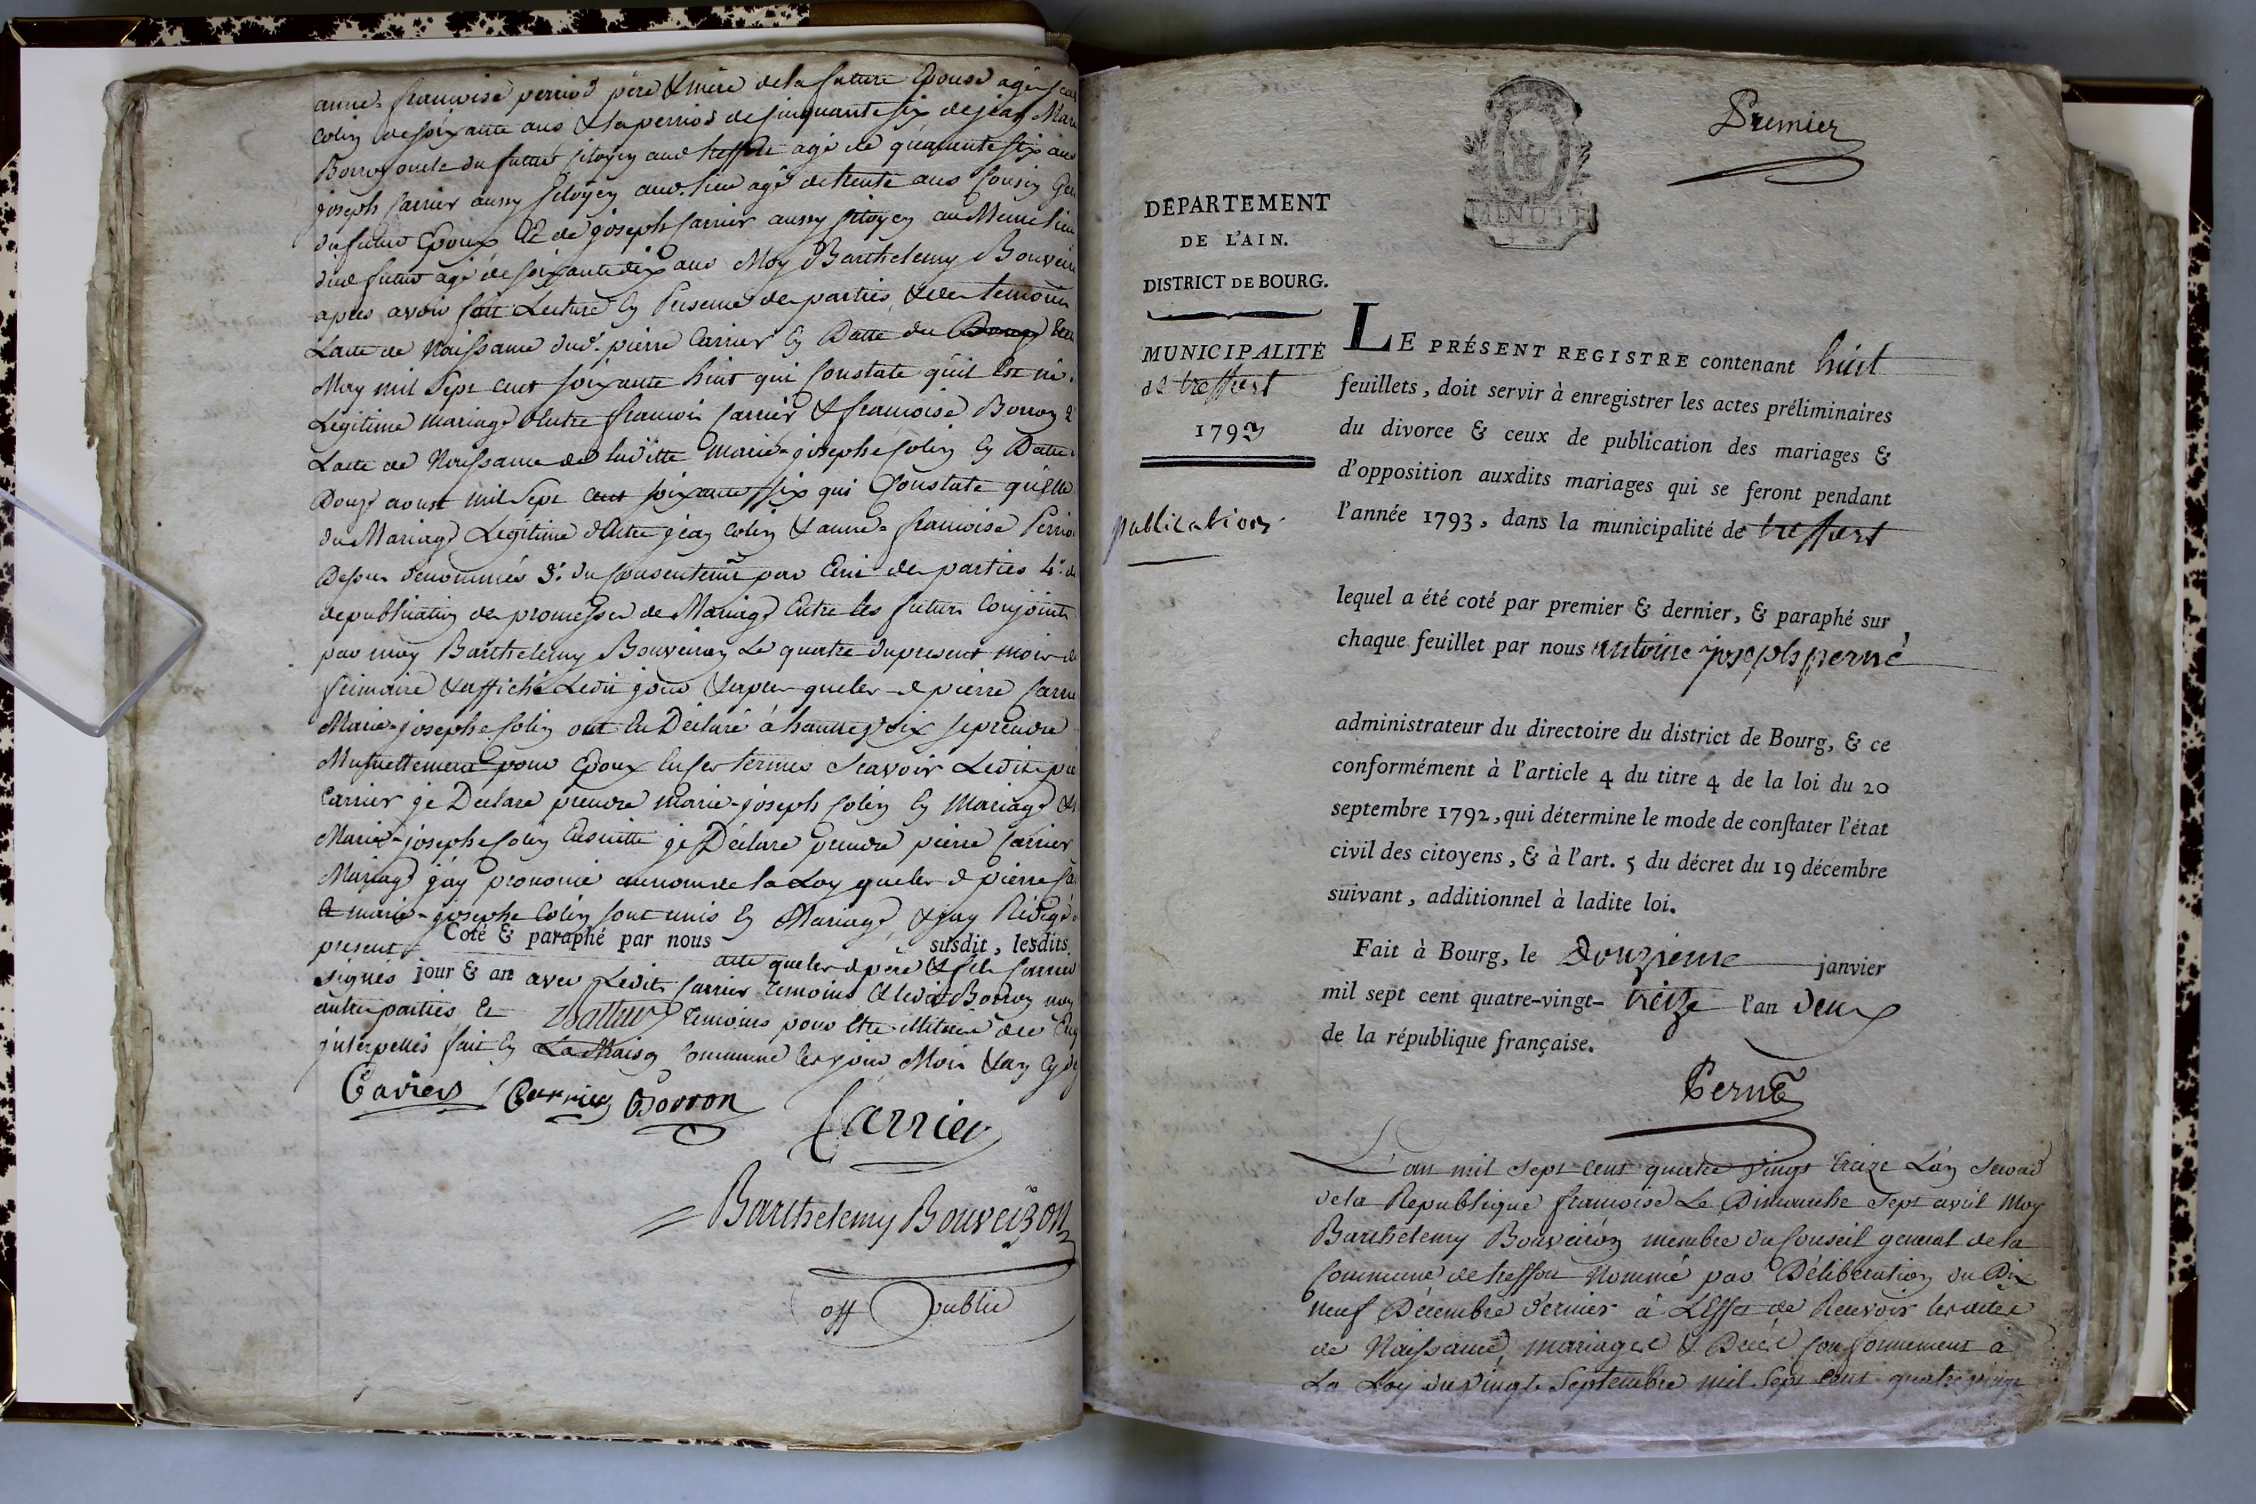 anne-françoise perriod père & mère de la future Epouse agé scav
Colin de soixante ans & la perriod de cinquante six de jean Mari
Borron oncle du futur citoyen aud treffort agé de quarante six ans
joseph Carrier aussy citoyen aud. lieu agé de trente ans Cousin Ger
du futur Epoux & de joseph Carrier aussy citoyen au Meme lieu
dud futur agé de soixante dix ans Moy Barthelemy Bouveiro
apres avoir fait Lecture En Presence des parties & des temoins
Lacte de Naissance dud. pierre Carrier En Datte du
May mil Sept cent soixante huit qui Constate qu'il Est né
Legitime mariage Entre françois Carrier & françoise Borron 2
Lacte de Naissance de laditte Marie-josephe Colin En Datte
Douze aoust mil Sept cent soixante six qui Constate quelle
du Mariage Legitime d'Entre jean Colin & anne-françoise Perrio
Dessus denommés 3.° du Consentemt par Ecrit des parties 4.° de
de publication des promesses de Mariage Entre les futurs Conjoints
par moy Barthelemy Bouveiron Le quatre du present mois de
frimaire & affiché Ledit jour & apres que les d pierre Carrie
Marie-josephe Colin ont Eu Déclaré à haute voix se prendre
Mutuellement pour Epoux En ses termes Scavoir Ledit pie
Carrier je Déclare prendre marie-joseph Colin En Mariage &
Marie-josephe Colin Ensuitte je Déclare prendre pierre Carrier
Mariage j'ay prononcé au nom de la Loy que les d pierre Ca
& marie-josephe Colin sont unis En Mariage & j'ay Rédigé
present Coté & paraphé par nous acte que les d père & fils Carrier susdit, lesdits
signés jour & an avec Ledit Carrier temoins & ledit Borron non
autres parties & temoins pour Etre illiteré de Enq
interpellés fait En La Maison Commune les jour Mois & an Cy d
Caries Carrier Borron
Carrier
Barthelemy Bouveiron
off public
Premier
MINUTE
DÉPARTEMENT
DE L'AIN.
DISTRICT DE BOURG.
MUNICIPALITÉ
de treffort
1793
publication
LE PRÉSENT REGISTRE contenant huit
feuillets, doit servir à enregistrer les actes préliminaires
du divorce & ceux de publication des mariages &
d'opposition auxdits mariages qui se feront pendant
l'année 1793, dans la municipalité de treffort
lequel a été coté par premier & dernier, & paraphé sur
chaque feuillet par nous antoine joseph perné
administrateur du directoire du district de Bourg, & ce
conformément à l'article 4 du titre 4 de la loi du 20
septembre 1792, qui détermine le mode de constater l'état
civil des citoyens, & à l'art. 5 du décret du 19 décembre
suivant, additionnel à ladite loi.
Fait à Bourg, le douzieme janvier
mil sept cent quatre-vingt- treize l'an deux
de la république française.
Perné
L'an mil sept cent quatre vingt treize L'an Second
de la Republique françoise Le Dimanche sept avril Moy
Barthelemy Bouveiron membre du Conseil general de la
Commune de treffort Nommé par Déliberation du Dix
neuf Décembre dernier à L'Effet de Recevoir les actes
de Naissance, mariages & Décès Conformement à
La Loy du vingt Septembre mil Sept Cent quatre vingt